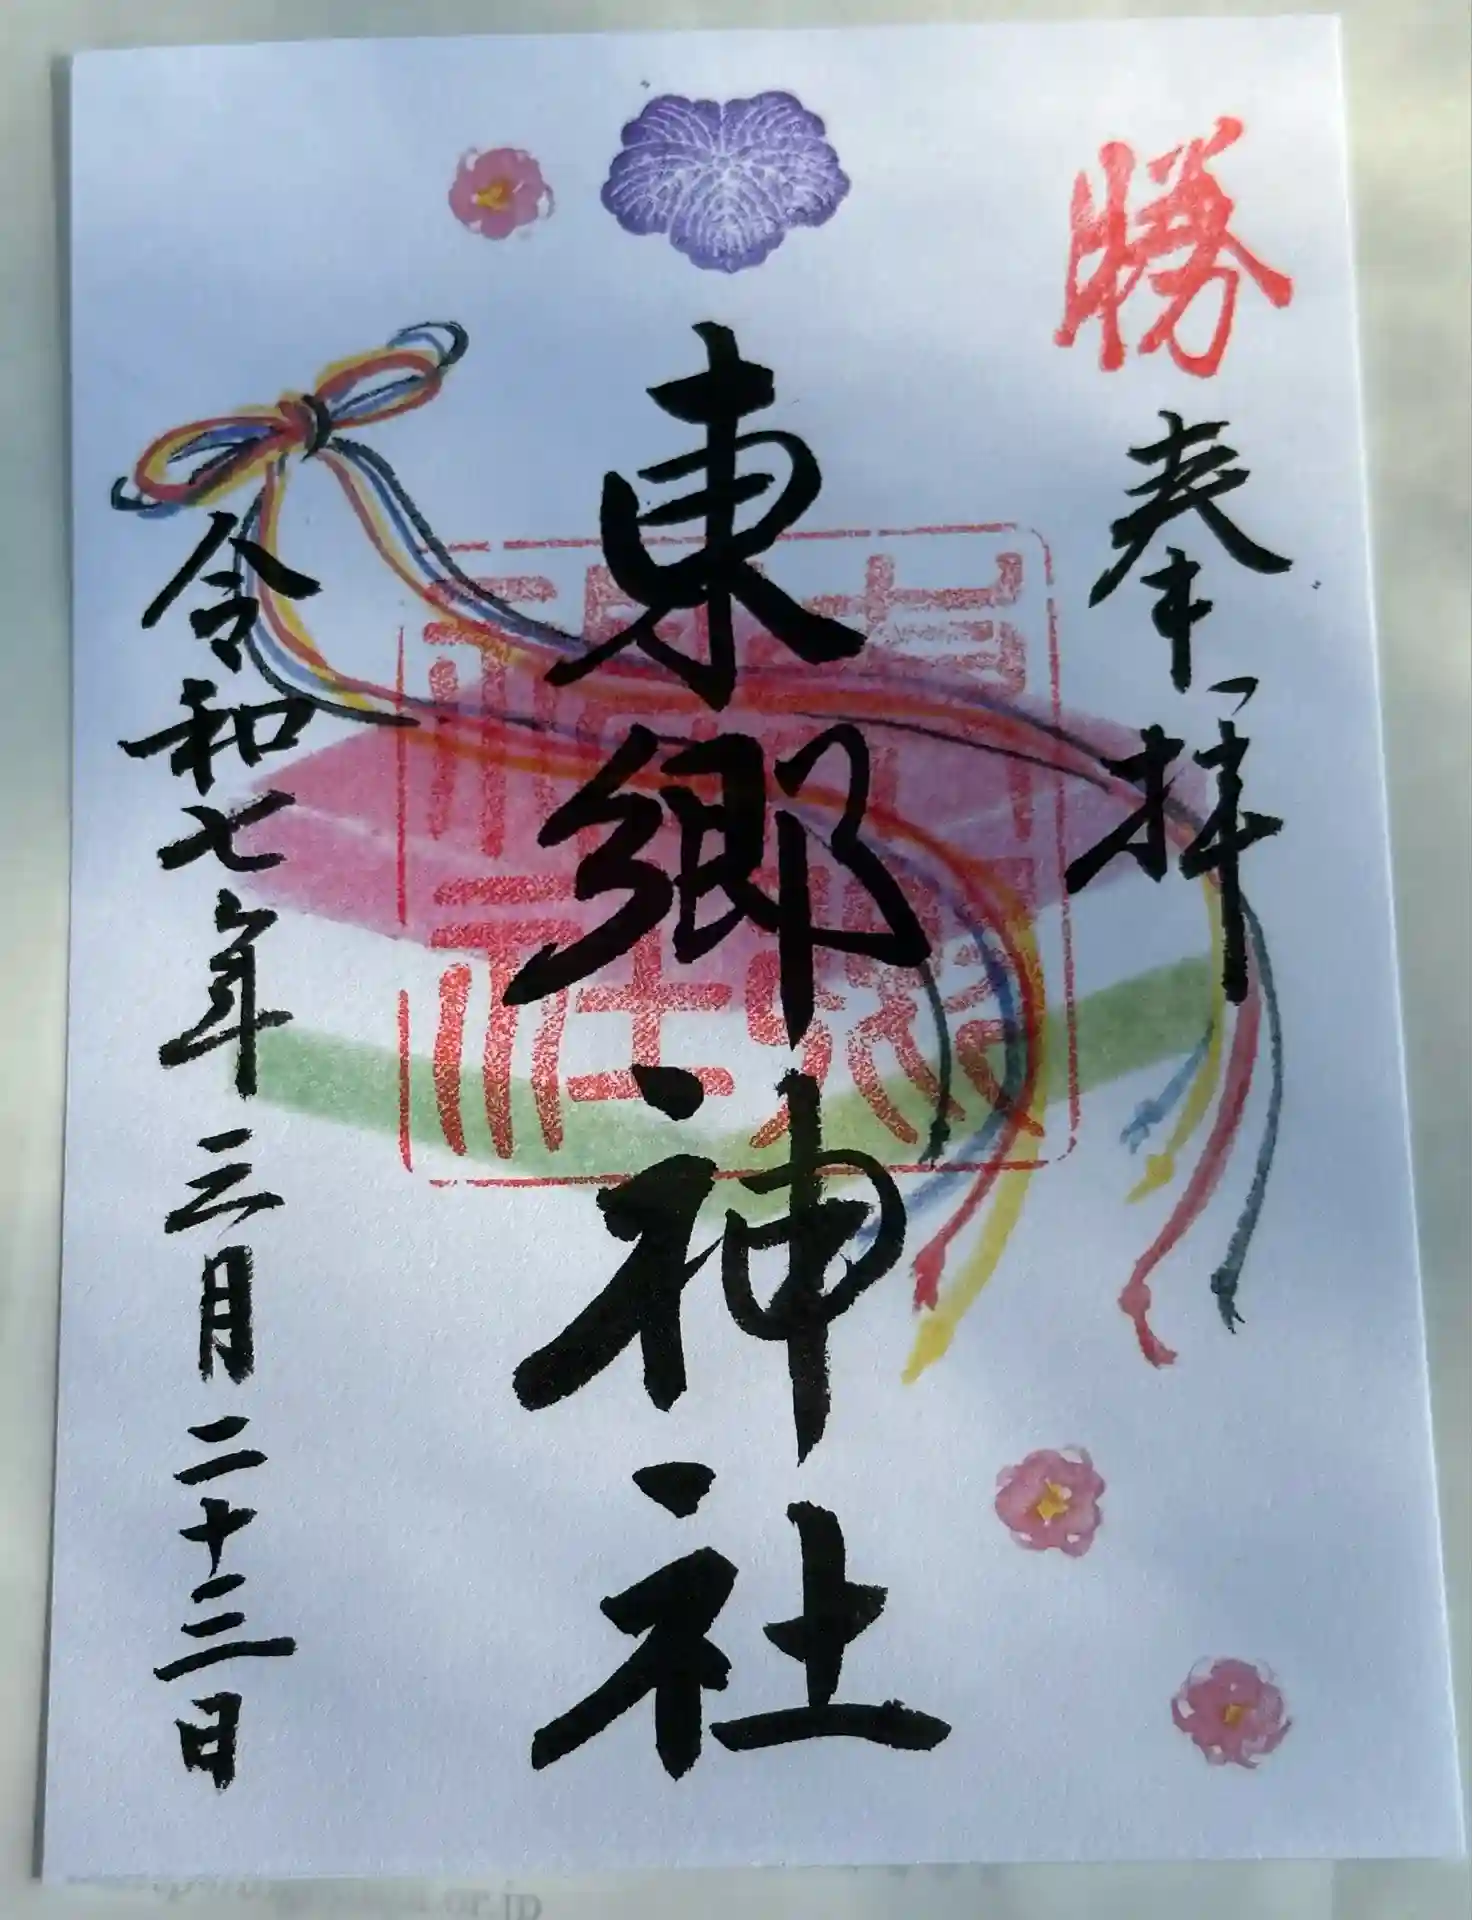 勝
奉拝
東郷神社
東郷神社
令和七年三月二十三日
or.jp